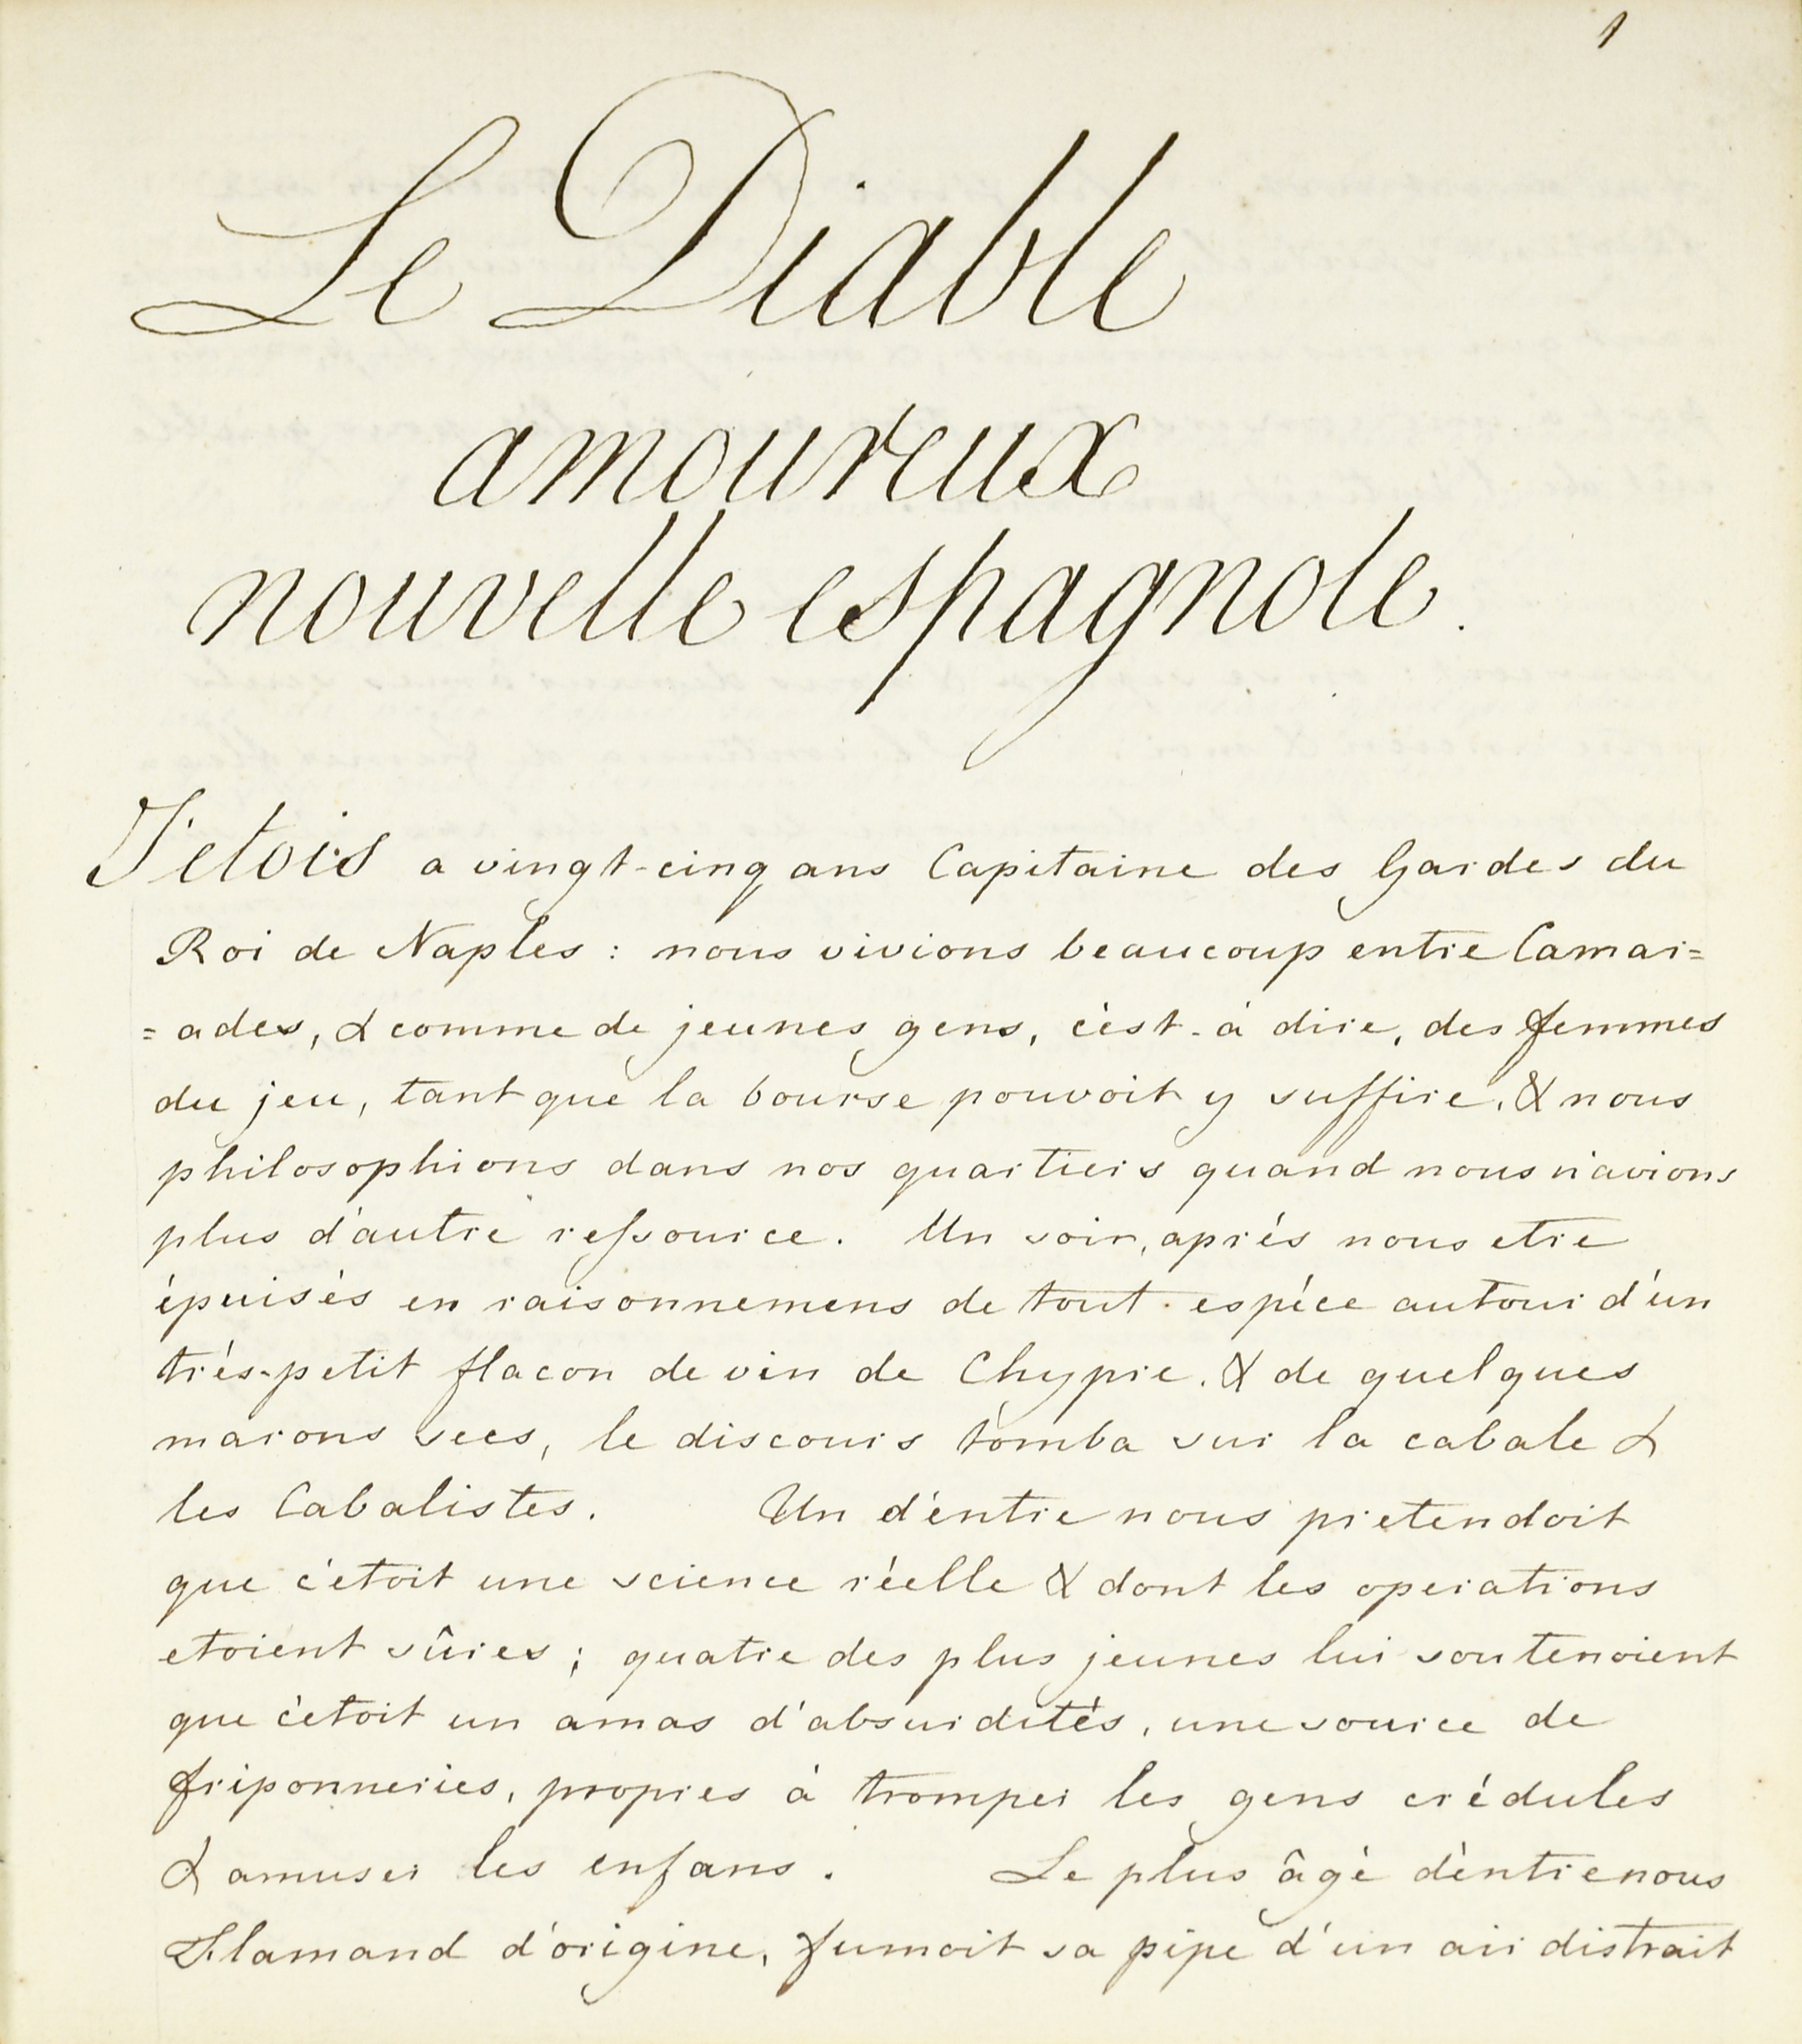 1
Le Diable
amoureux
nouvelle espagnole.
J'etois a vingt-cinq ans Capitaine des Gardes du
Roi de Naples : nous vivions beaucoup entre Camar=
=ades, & comme de jeunes gens, c'est-à dire, des femmes
du jeu, tant que la bourse pouvoit y suffire, & nous
philosophions dans nos quartiers quand nous n'avions
plus d'autre ressource. Un soir, après nous etre
épuisés en raisonnemens de tout espéce autour d'un
trés-petit flacon de vin de Chypre, & de quelques
marons secs, le discours tomba sur la cabale &
les Cabalistes. Un d'entre nous pretendoit
que c'etoit une science réelle & dont les operations
etoient sûres ; quatre des plus jeunes lui soutenoient
que c'etoit un amas d'absurdités, une source de
friponneries, propres à tromper les gens crédules
& amuser les enfans. Le plus âgé d'entre nous
Flamand d'origine, fumoit sa pipe d'un air distrait